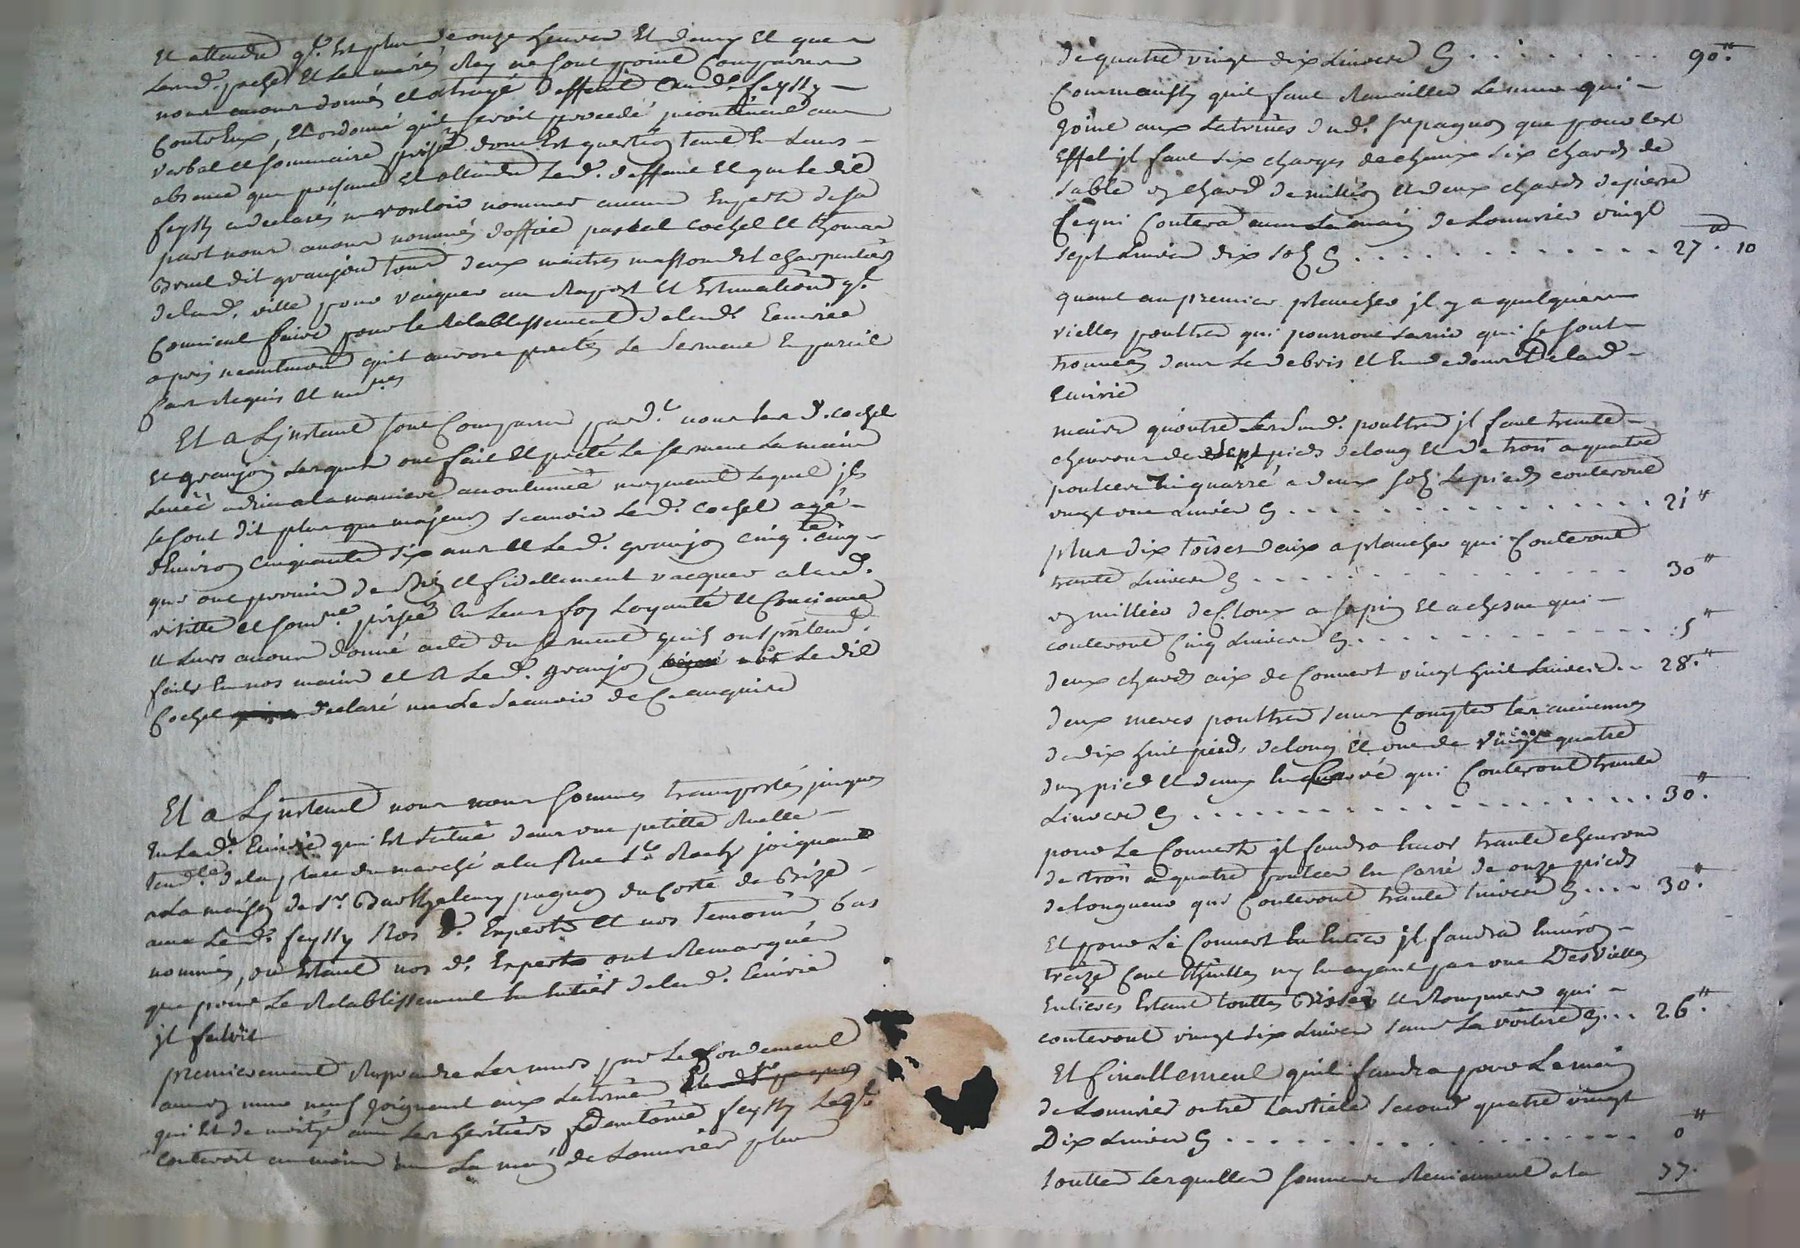 Et attendu qu'il Est plus de onze heures Et demy Et que
les d. Et les mariés Rey ne sont point Comparus
nous avons donné et octroyé deffaut aud. feylly
Contr'Eux, Et ordonné qu'il seroit procédé
verbal et sommaire prisée dont Est question tant En leurs
absence que presence Et attendu led. deffaut Et que le dit
feylly a declaré ne vouloir nommer aucun Experts de sa
part nous avons nommés d'office pascal cochet et thomas
dit granjon tous deux maitres massons Et charpentiers
de lad. ville pour vaquer au Raport et Estimation qu'il
Convient faire pour le Retablissement de lad. Ecurie
apres neantmoins qu'il auront pretté le serment En pareil
Cas Requis et
Et a L'jnstant sont Comparus pard. nous les d. cochet
et granjon lesquels ont fait Et preté le serment la main
Levée a dieu a la maniere acoutumée moyenant lequel jls
se sont dit plus que majeurs scavoir le d. cochet agé
d'Environ Cinquante six ans et le d. granjon cinqte. cinq
qui ont promis de bien et fidellement vacquer a la d.
visitte et somre. prisée En leurs foy Loyauté et Concience
et leurs avons donné acte du serment quils ont
faits En nos mains et le d. granjon le dit
Cochet declaré ne le scavoir de Ce enquis
Et a L'jnstant nous nous sommes transportés jusques
En la d. Ecurie qui Est située dans une petitte Ruelle
tend.te de la place du marché a la Rue St. joignant
a la maison de Sr. Barthelemy pagnon du Costé de Bize
avec le d. feylly Nos d. Experts et nos temoins bas
nommés, ou Estant nos d. Experts ont Remarqués
que pour le Retablissement En Entier de la d. Ecurie
jl falloit
premierement Reprendre les murs par le fondement
au mur neuf joignant aux latrines
qui Est de moitié avec les heritiers d'antoine feylly
couteroit au moins la main de Louvrier
de quatre vingt dix Livres Cy . . . . . . . . 90.#
Comme aussy qu'il faut Remailler le mur qui
joint aux Latrines du d. Sr pagnon que pour cest
Effet jl faut six charges de chaux six chards de
sable un chard de et deux chards de pierre
Ce qui Coutera la main de Louvrier vingt
sept Livres dix sols Cy . . . . . . . . . . 27# . 10
quant au premier plancher jl y a quelques
vielles pouttres qui pourront servir qui se sont
trouvées dans le debris et En dedans de la d.
Ecurie
mais qu'outre les sus d. pouttres jl faut trante
chevrons de sept pieds de long et de trois a quatre
pouces En quarré a deux sols le pied couteront
vingt une Livres Cy . . . . . . . . . . . . 21#
plus dix toises daix a plancher qui Couteront
trante Livres Cy . . . . . . . . . . . . . 30#
un millier de Cloux a sapin et a chesne qui
couteront Cinq Livres Cy . . . . . . . . . 5#
deux chards aix de Couvert vingt huit Livres . . 28.#
deux meres pouttres sans Compter les enciennes
de dix huit pieds de long Et une de vingt quatre
dun pied et demy En Carré qui Couteront trante
Livres Cy . . . . . . . . . . . . . . . 30.#
pour le Couvert jl faudra Encor trante chevrons
de trois a quatre pouces En Carré de onze pieds
de longueur qui Couteront trante Livres Cy . . . . 30.#
Et pour le Couvert En Entier jl faudra Environ
treize Cent thuilles ny En ayant pas une Des Vielles
Entieres Estant touttes Brisées et Rompues qui
couteront vingt six Livres sans la voiture Cy . . . 26.#
Et finallement quil faudra pour la main
de Louvrier outre Larticle second quatre vingt
Dix Livres Cy . . . . . . . . . . . . . . 0#
touttes lesquelles sommes Reviennent a la